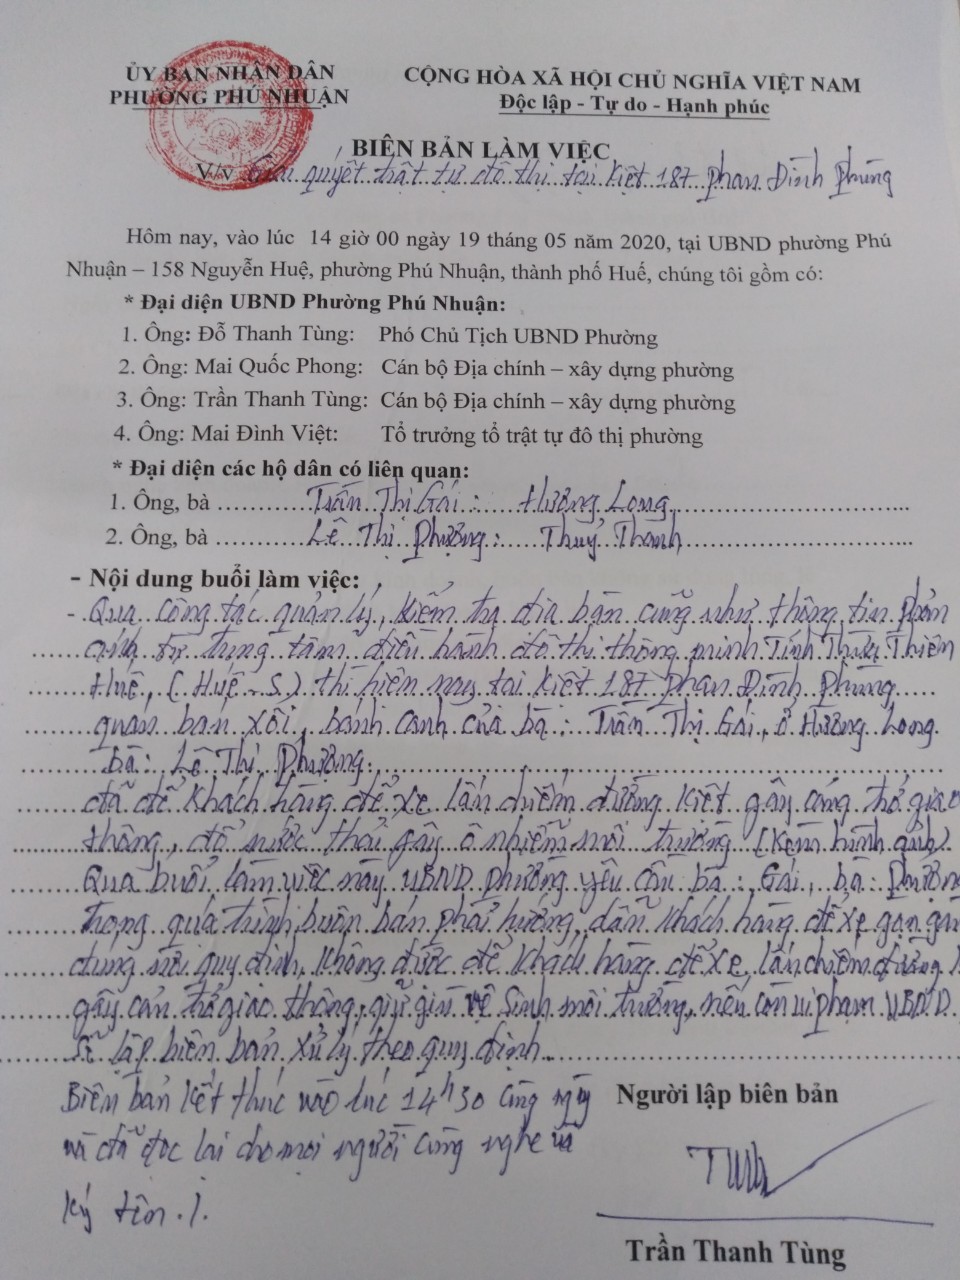 ỦY BAN NHÂN DÂN
PHƯỜNG PHÚ NHUẬN
CỘNG HÒA XÃ HỘI CHỦ NGHĨA VIỆT NAM
Độc lập - Tự do - Hạnh phúc
BIÊN BẢN LÀM VIỆC
V/v Giải quyết trật tự đô thị tại Kiệt 187 Phan Đình Phùng
Hôm nay, vào lúc 14 giờ 00 ngày 19 tháng 05 năm 2020, tại UBND phường Phú
Nhuận – 158 Nguyễn Huệ, phường Phú Nhuận, thành phố Huế, chúng tôi gồm có:
* Đại diện UBND Phường Phú Nhuận:
1. Ông: Đỗ Thanh Tùng: Phó Chủ Tịch UBND Phường
2. Ông: Mai Quốc Phong: Cán bộ Địa chính – xây dựng phường
3. Ông: Trần Thanh Tùng: Cán bộ Địa chính – xây dựng phường
4. Ông: Mai Đình Việt: Tổ trưởng tổ trật tự đô thị phường
* Đại diện các hộ dân có liên quan:
1. Ông, bà ......... Trần Thị Gái : Hương Long
2. Ông, bà ......... Lê Thị Phượng : Thủy Thanh
- Nội dung buổi làm việc:
- Qua công tác quản lý, kiểm tra địa bàn cũng như thông tin phản
ánh từ trung tâm điều hành đô thị thông minh Tỉnh Thừa Thiên
Huế, (Huế - S) thì hiện nay tại Kiệt 187 Phan Đình Phùng
quán bán xôi, bánh canh của bà : Trần Thị Gái, ở Hương Long
bà : Lê Thị Phượng.
đã để khách hàng để xe lấn chiếm đường Kiệt gây cảng trở giao
thông, đổ nước thải gây ô nhiễm môi trường (Kèm hình ảnh)
Qua buổi làm việc này UBND phường yêu cầu bà : Gái, bà : Phượng
trong quá trình buôn bán phải hướng dẫn khách hàng để xe gọn gàng
đúng nơi quy định, không được để khách hàng để xe lấn chiếm đường
gây cản trở giao thông, giữ gìn vệ sinh môi trường, nếu còn vi phạm UBND
sẽ lập biên bản xử lý theo quy định
Biên bản kết thúc vào lúc 14h30 cùng ngày
và đã đọc lại cho mọi người cùng nghe và
ký tên ./.
Người lập biên bản
Trần Thanh Tùng